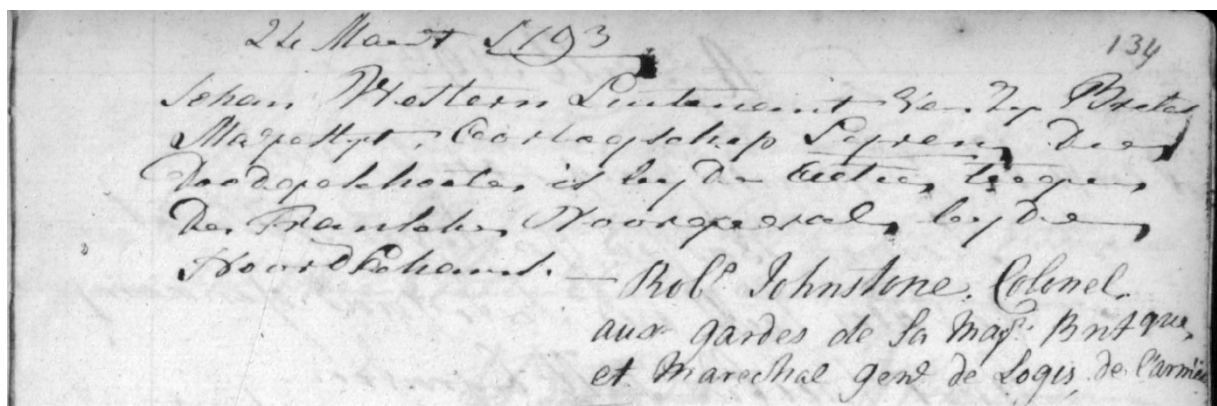 24 Maart 1793
134
Johan Western Lieutenant van Zy Brittas
Majesteyt Oorlogschip Syren, den
Doodgeschooten is by den actie, teegen,
De Franschen Voor geval, by den
Noordschans.
— Robt Johnstone. Colonel.
aux gardes de sa Majté. Brit que,
et Marechal genl de Logis, de l'armée